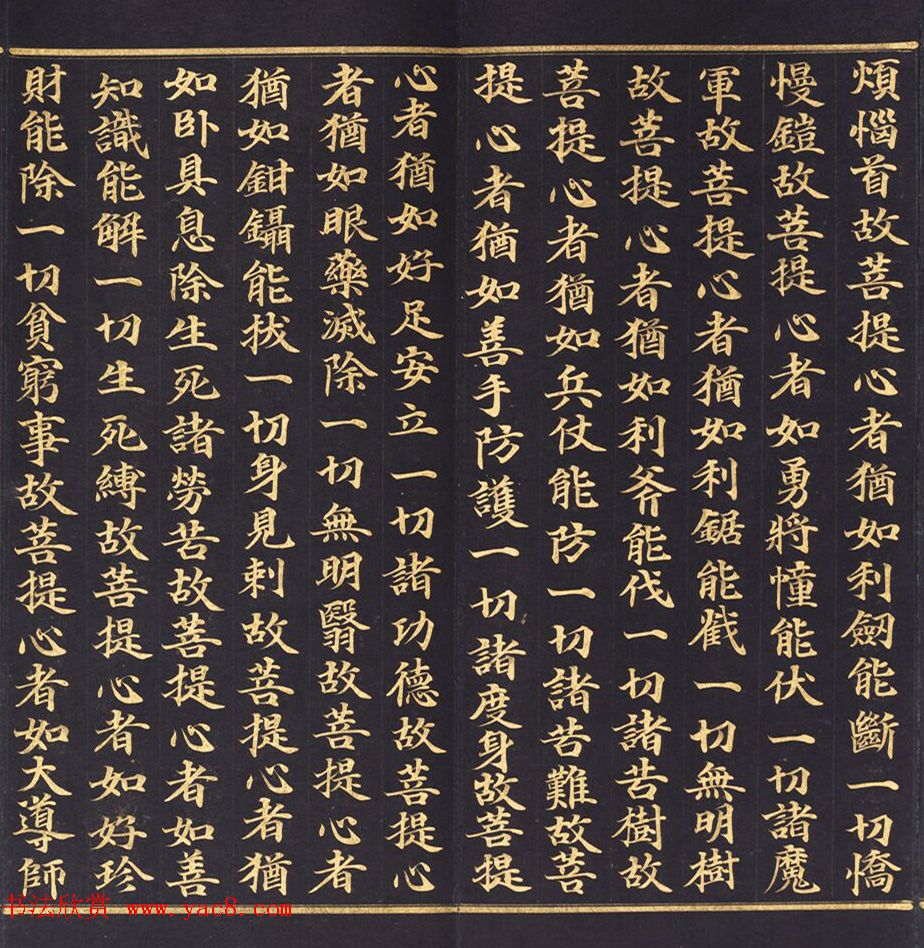 煩惱首故菩提心者猶如利劒能斷一切憍
慢鎧故菩提心者如勇將幢能伏一切諸魔
軍故菩提心者猶如利鋸能截一切無明樹
故菩提心者猶如利斧能伐一切諸苦樹故
菩提心者猶如兵仗能防一切諸苦難故菩
提心者猶如善手防護一切諸度身故菩提
心者猶如好足安立一切諸功德故菩提心
者猶如眼藥滅除一切無明翳故菩提心者
猶如鉗鑷能拔一切身見刺故菩提心者猶
如臥具息除生死諸勞苦故菩提心者如善
知識能解一切生死縛故菩提心者如好珍
財能除一切貧窮事故菩提心者如大導師
书法欣赏 www.yac8.com